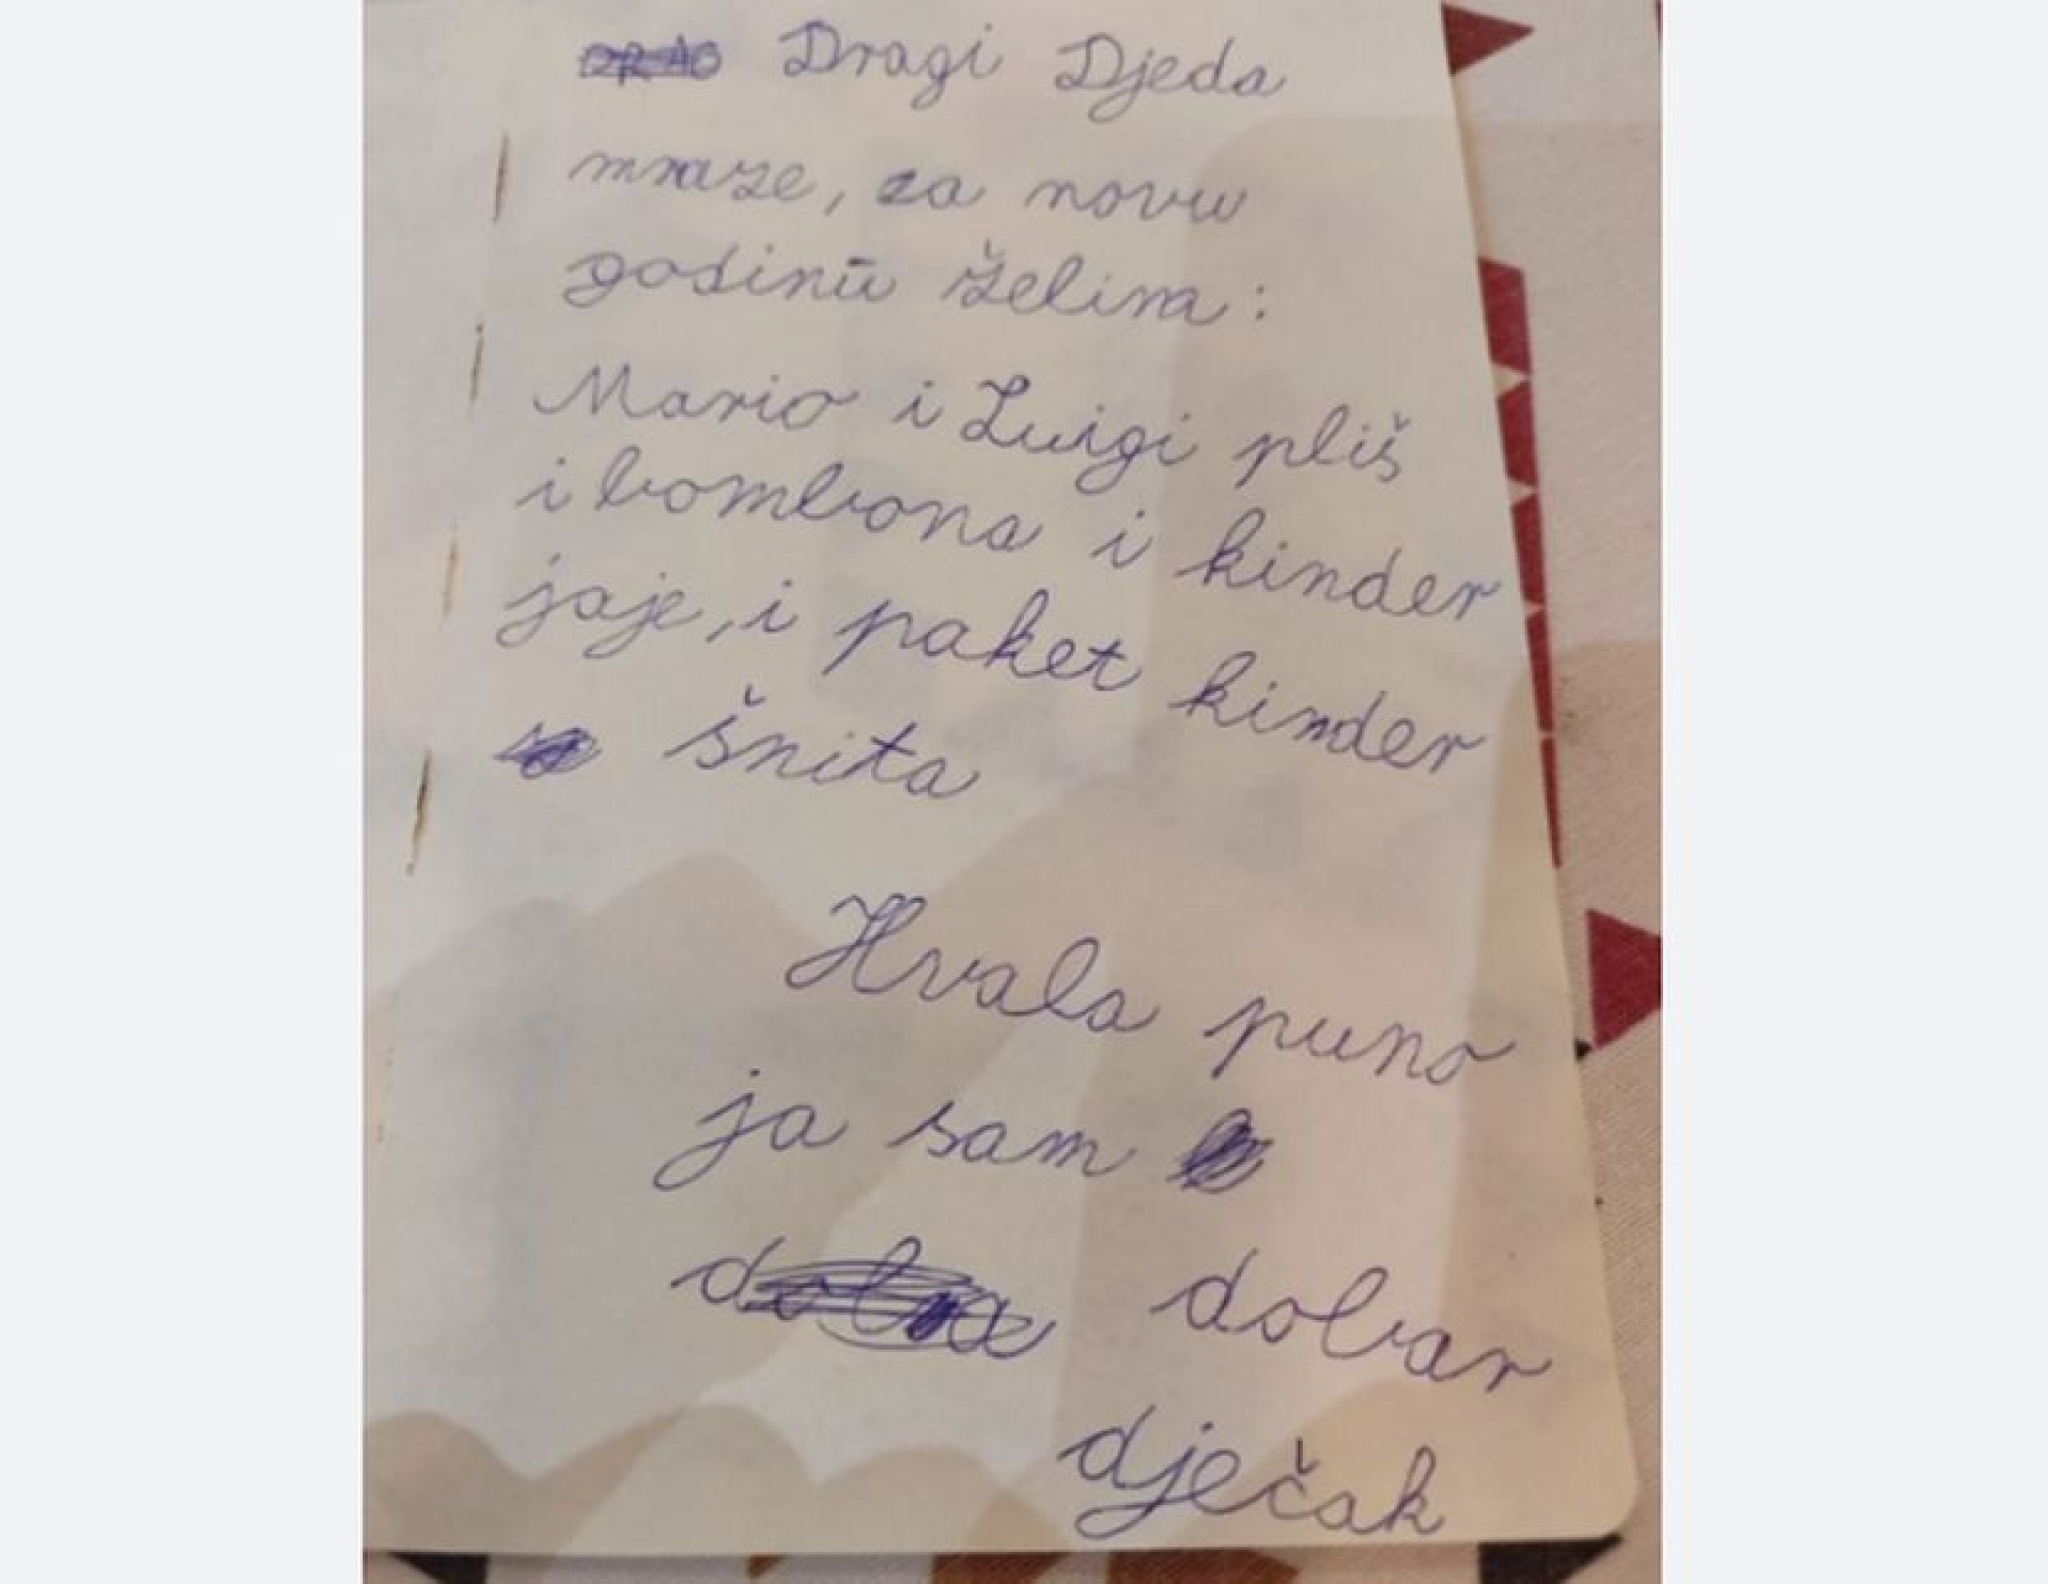 Dragi Djeda
mraze, za novu
godinu želim:
Mario i Luigi pliš
i bombona i kinder
jaje, i paket kinder
šnita
Hvala puno
ja sam
dobar
dječak